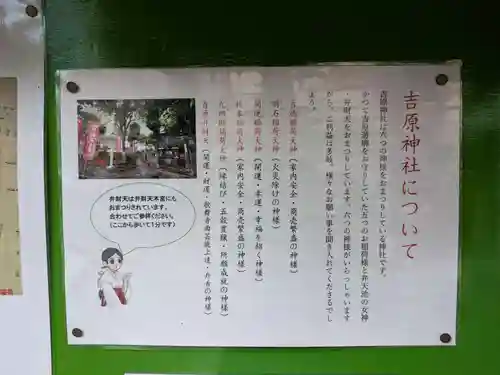 吉原神社について
吉原神社は六つの神様をおまつりしている神社です。
かつて吉原遊廓をお守りしていた五つのお稲荷様と弁天池の女神
・弁財天をおまつりしています。六つの神様がいらっしゃいます
から、ご利益は多岐。様々なお願い事を聞き入れてくださるでし
ょう。
吉徳稲荷大神（家内安全・商売繁盛の神様）
明石稲荷大神（火災除けの神様）
開運稲荷大神（開運・幸福を招く神様）
榎本稲荷大神（家内安全・商売繁盛の神様）
九郎助稲荷大神（縁結び・五穀豊穣・所願成就の神様）
吉原弁財天（開運・財運・歌舞音曲芸能上達・美の神様）
弁財天は弁財天本宮にも
おまつりされています。
合わせてご参拝ください。
（ここから歩いて1分です）